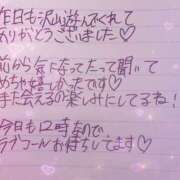 昨日も沢山遊んでくれて
ありがとうございました♡
前から気になってたって聞いて
めちゃ嬉しかったです♡
また会えるの楽しみにしてるね!
今日も12時なので
ラブコールお待ちしてます♡